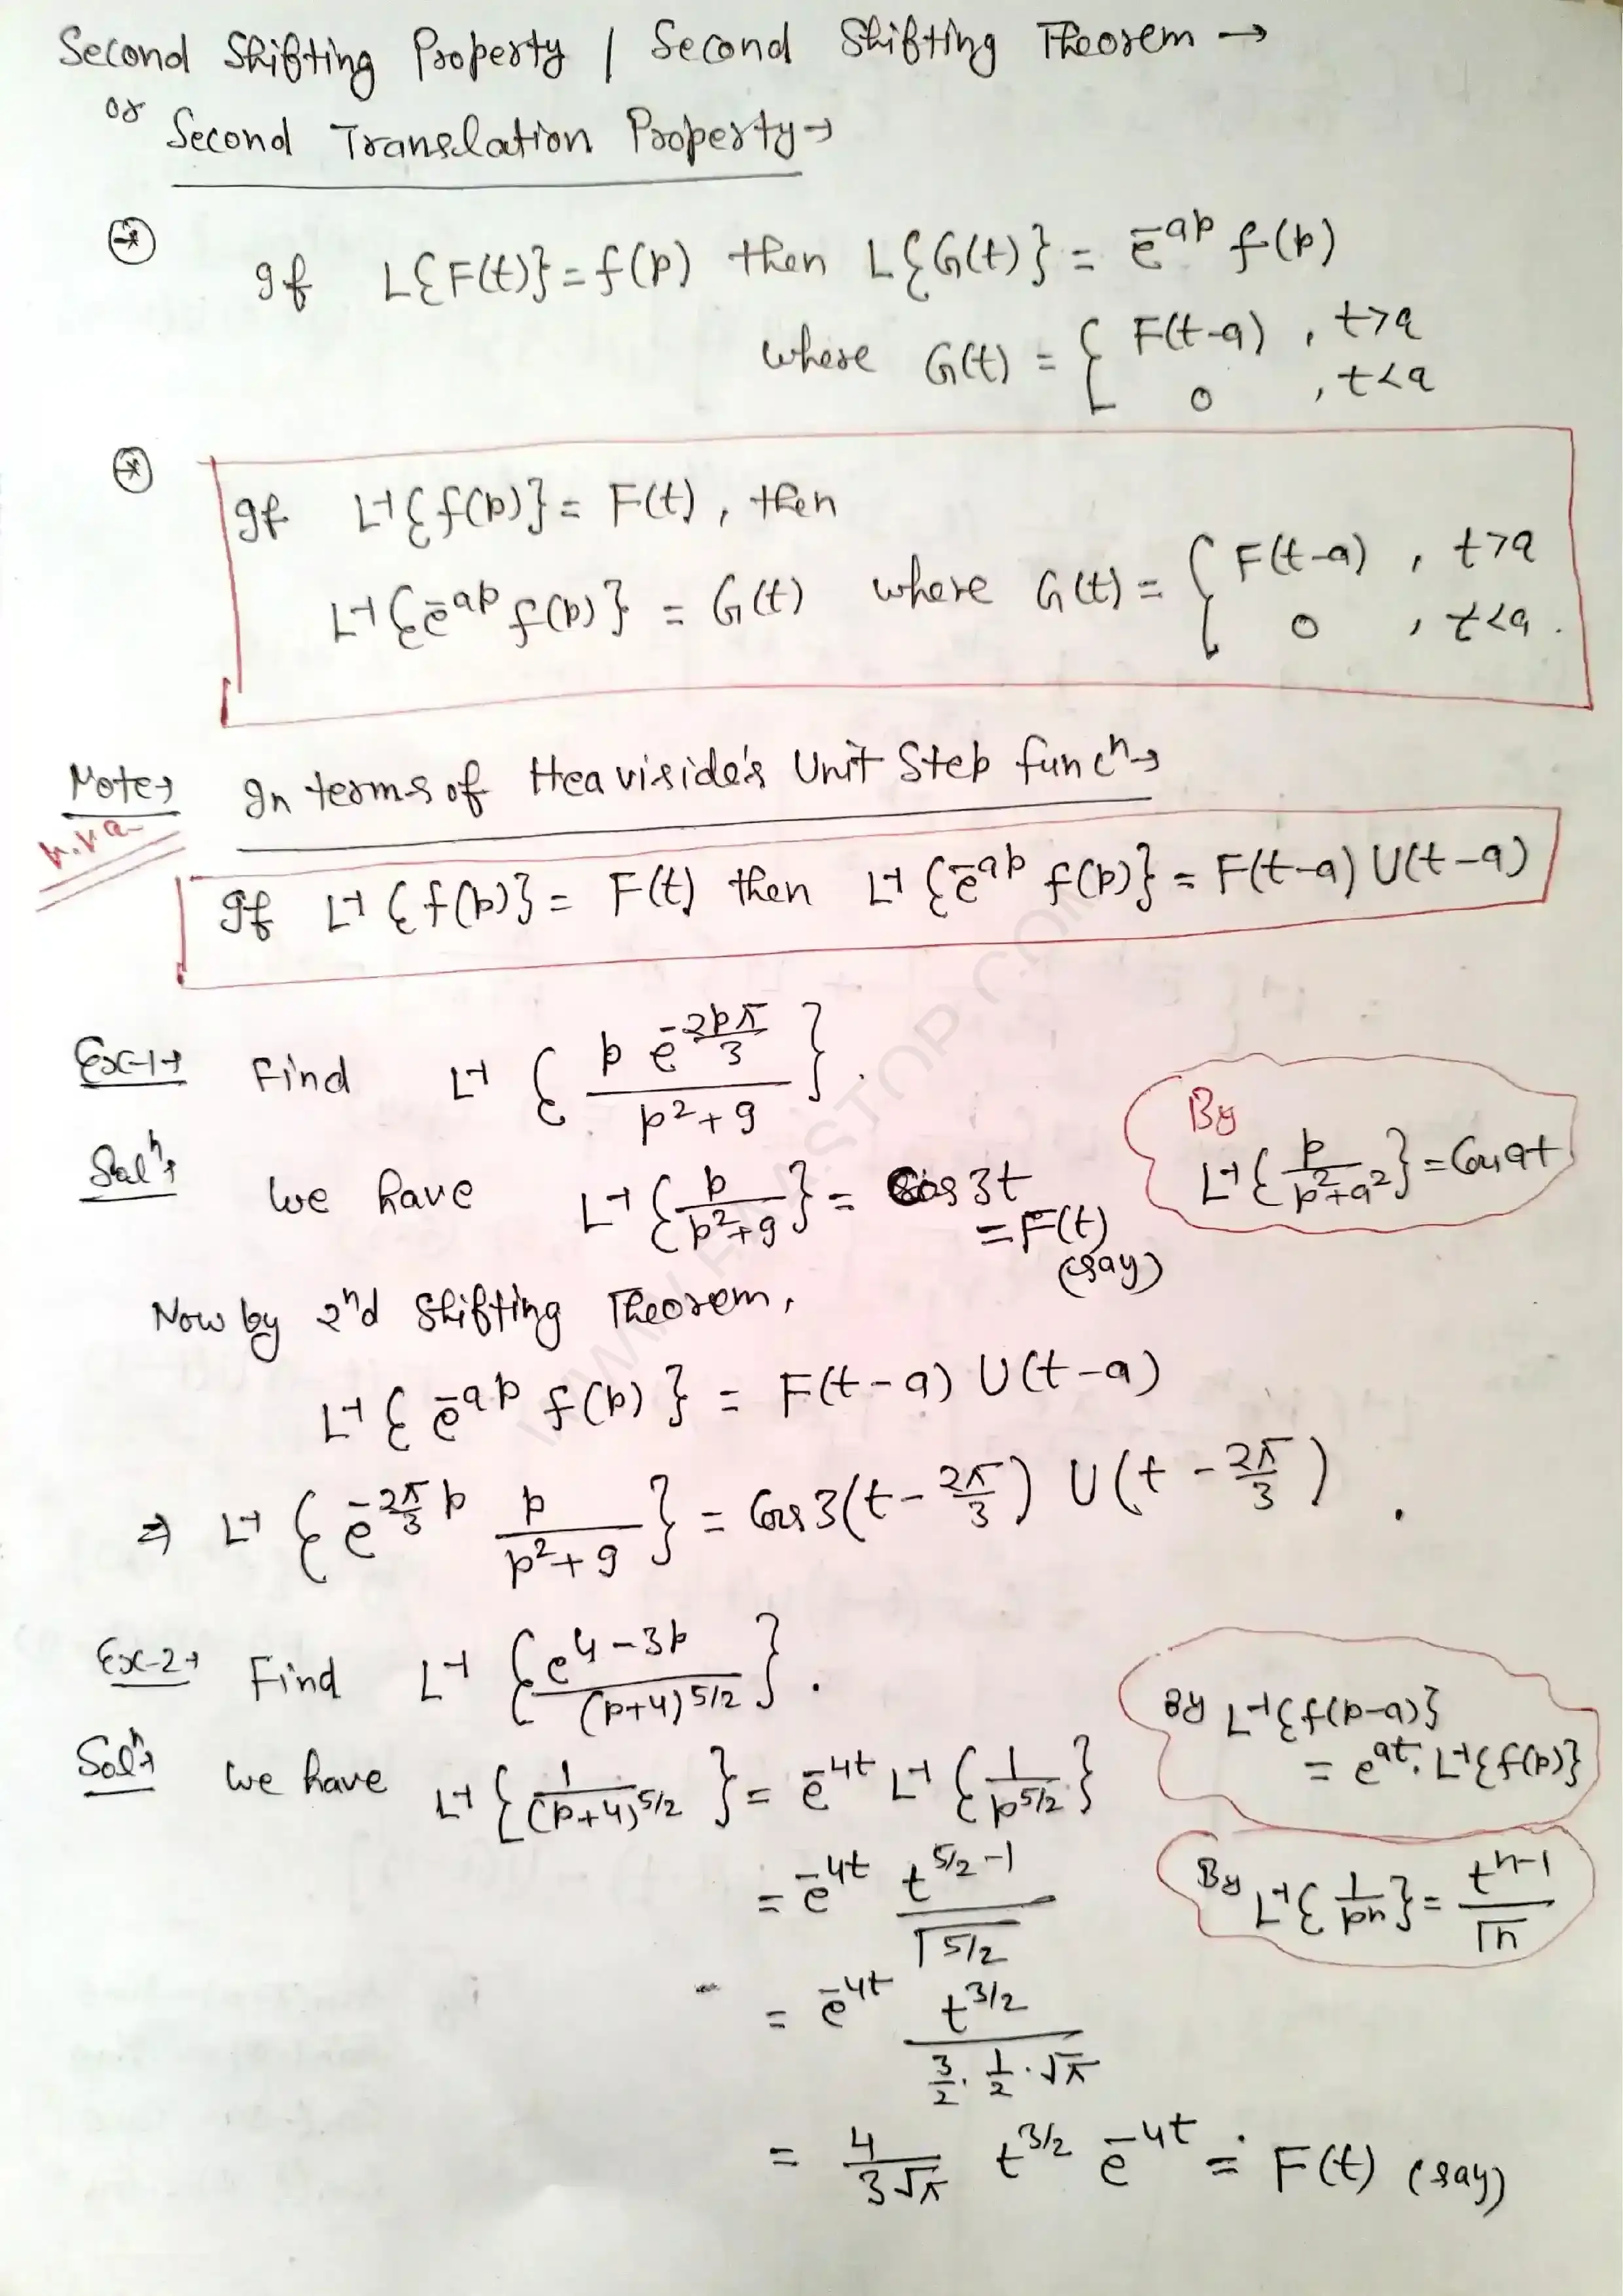 Second Shifting Property / Second Shifting Theorem →
or Second Translation Property →
If L{F(t)} = f(p) then L{G(t)} = e^{-ap} f(p)
where G(t) = { F(t-a) , t>a
0 , t<a
If L⁻¹{f(p)} = F(t), then
L⁻¹{e^{-ap} f(p)} = G(t) where G(t) = { F(t-a) , t>a
0 , t<a .
Note→ In terms of Heaviside's Unit Step funcⁿ→
If L⁻¹{f(p)} = F(t) then L⁻¹{e^{-ap} f(p)} = F(t-a) U(t-a)
Ex-1→ Find L⁻¹ { p e^{-2pπ/3} / p²+9 } .
Solⁿ→ We have L⁻¹{ p / p²+9 } = Cos 3t
= F(t)
(say)
By
L⁻¹{ p / p²+a² } = Cos at
Now by 2nd Shifting Theorem,
L⁻¹{ e^{-ap} f(p) } = F(t-a) U(t-a)
⇒ L⁻¹ { e^{-2π/3 p} p / p²+9 } = Cos 3(t - 2π/3) U(t - 2π/3) .
Ex-2→ Find L⁻¹ { e^{4-3p} / (p+4)^{5/2} } .
Solⁿ→ We have L⁻¹ { 1 / (p+4)^{5/2} } = e^{-4t} L⁻¹ { 1 / p^{5/2} }
By L⁻¹{f(p-a)}
= e^{at} . L⁻¹{f(p)}
= e^{-4t} t^{5/2 -1} / Γ5/2
By L⁻¹{ 1 / pⁿ } = t^{n-1} / Γn
= e^{-4t} t^{3/2} / 3/2 . 1/2 . √π
= 4 / 3√π t^{3/2} e^{-4t} = F(t) (say)